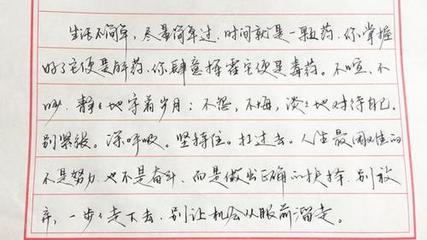 生活不简单，尽量简单过。时间就是一颗药，你掌握
好了它便是解药，你肆意挥霍它便是毒药。不喧、不
吵，静々地守着岁月；不怨，不悔，淡々地对待自己。
别紧张。深呼吸。坚持住。扛过去。人生最困难的
不是努力，也不是奋斗，而是做出正确的抉择，别放
弃，一步々走下去，别让机会从眼前溜走。